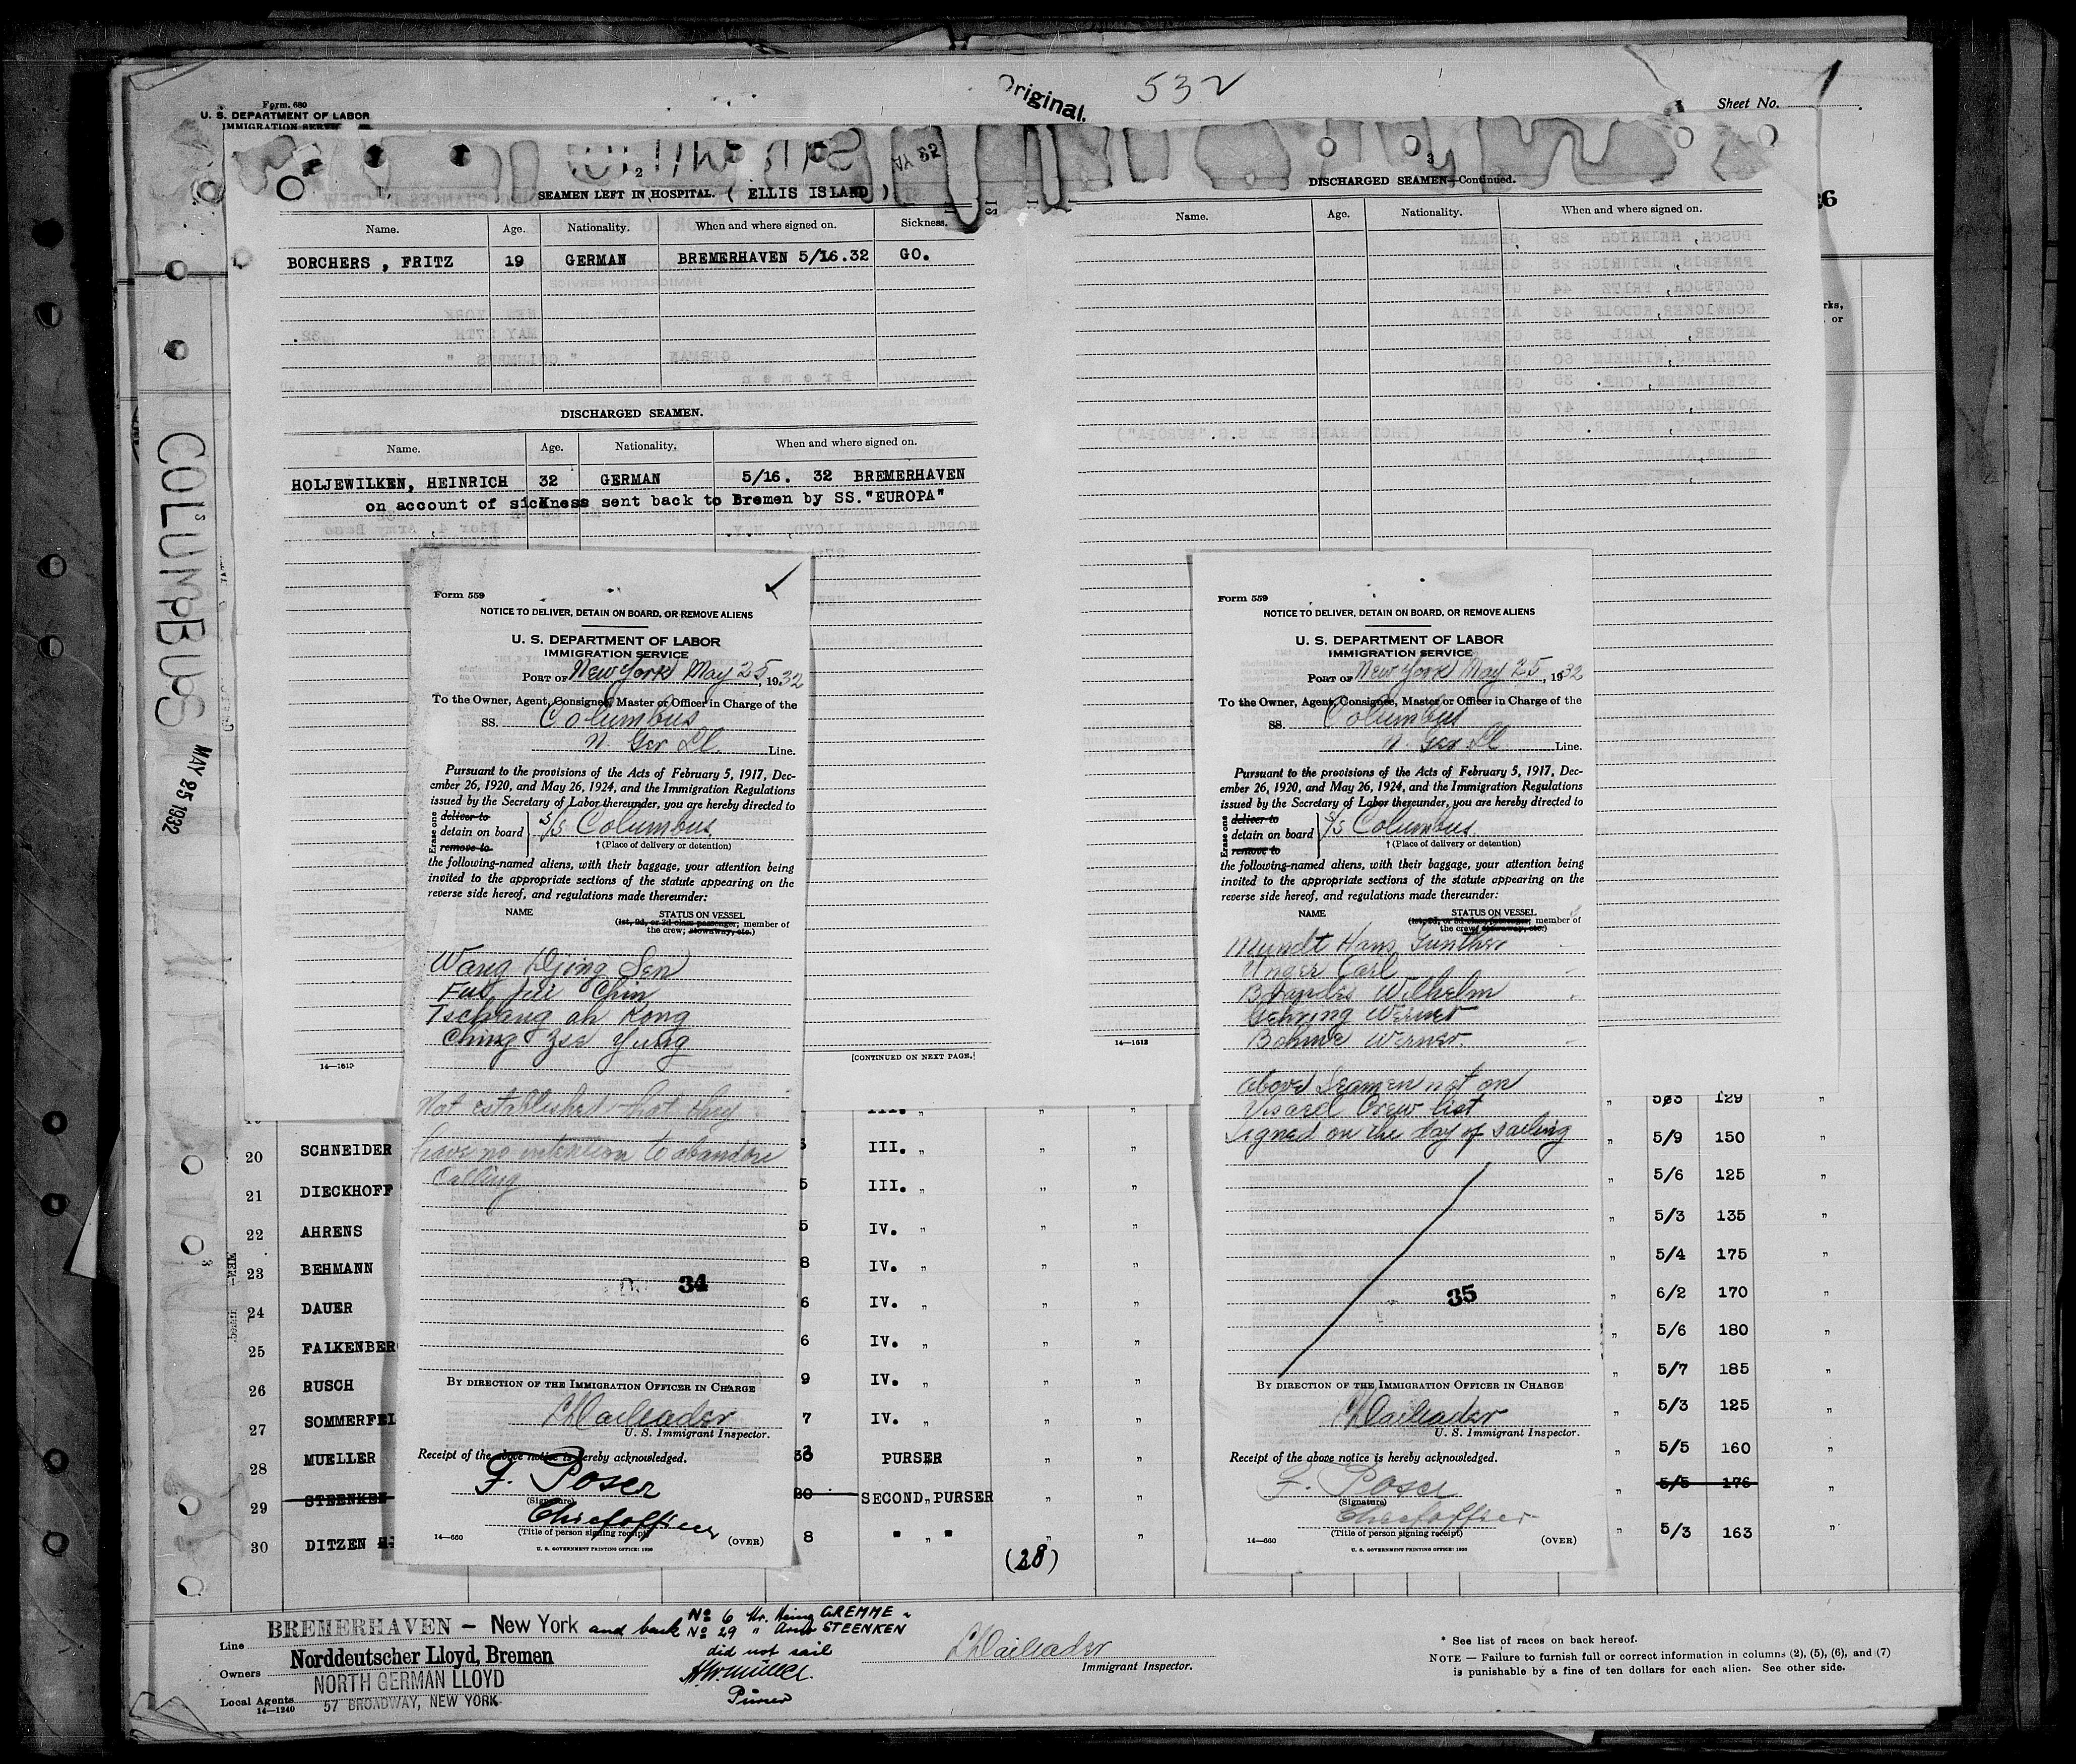 Form. 680
U. S. DEPARTMENT OF LABOR
IMMIGRATION
Original.
532
Sheet No. 1
COLUMBUS
MAY 25 1932
2
SEAMEN LEFT IN HOSPITAL. ( ELLIS ISLAND )
Name. Age. Nationality. When and where signed on. Sickness.
BORCHERS , FRITZ 19 GERMAN BREMERHAVEN 5/16.32 GO.
DISCHARGED SEAMEN.
Name. Age. Nationality. When and where signed on.
HOLJEWILKEN, HEINRICH 32 GERMAN 5/16. 32 BREMERHAVEN
on account of sickness sent back to Bremen by SS. "EUROPA"
14—1613
[CONTINUED ON NEXT PAGE.]
3
DISCHARGED SEAMEN—Continued.
Name. Age. Nationality. When and where signed on.
14—1613
26
rks,
or
Form 559
NOTICE TO DELIVER, DETAIN ON BOARD, OR REMOVE ALIENS
U. S. DEPARTMENT OF LABOR
IMMIGRATION SERVICE
PORT OF New York May 25, 1932
To the Owner, Agent, Consignee, Master or Officer in Charge of the
SS. Columbus
N. Ger Ll. Line.
Pursuant to the provisions of the Acts of February 5, 1917, Dec-
ember 26, 1920, and May 26, 1924, and the Immigration Regulations
issued by the Secretary of Labor thereunder, you are hereby directed to
Erase one
deliver to
detain on board S/S Columbus.
remove to
† (Place of delivery or detention)
the following-named aliens, with their baggage, your attention being
invited to the appropriate sections of the statute appearing on the
reverse side hereof, and regulations made thereunder:
NAME STATUS ON VESSEL
(1st, 2d, or 3d class passenger; member of
the crew; stowaway, etc.)
Wang Djing Sen
Chin
Tschang ah Kong
Ching Zse Yung
Not established that they
have no intention to abandon
Calling
34
BY DIRECTION OF THE IMMIGRATION OFFICER IN CHARGE
U. S. Immigrant Inspector.
Receipt of the above notice is hereby acknowledged.
F. Poser
(Signature)
Chiefofficer
(Title of person signing receipt)
14—660
(OVER)
U. S. GOVERNMENT PRINTING OFFICE: 1930
Form 559
NOTICE TO DELIVER, DETAIN ON BOARD, OR REMOVE ALIENS
U. S. DEPARTMENT OF LABOR
IMMIGRATION SERVICE
PORT OF New York May 25, 1932
To the Owner, Agent, Consignee, Master or Officer in Charge of the
SS. Columbus
N. Ger Ll Line.
Pursuant to the provisions of the Acts of February 5, 1917, Dec-
ember 26, 1920, and May 26, 1924, and the Immigration Regulations
issued by the Secretary of Labor thereunder, you are hereby directed to
Erase one
deliver to
detain on board S/S Columbus.
remove to
† (Place of delivery or detention)
the following-named aliens, with their baggage, your attention being
invited to the appropriate sections of the statute appearing on the
reverse side hereof, and regulations made thereunder:
NAME STATUS ON VESSEL
(1st, 2d, or 3d class passenger; member of
the crew; stowaway, etc.)
Mundt Hans Gunther
Unger Carl
Wilhelm
Gehring Werner
Bohme Werner.
above Seamen not on
Visaed Crew list
signed on the day of sailing
35
BY DIRECTION OF THE IMMIGRATION OFFICER IN CHARGE
U. S. Immigrant Inspector.
Receipt of the above notice is hereby acknowledged.
F. Poser
(Signature)
Chiefofficer
(Title of person signing receipt)
14—660
(OVER)
U. S. GOVERNMENT PRINTING OFFICE: 1930
129 "
20 SCHNEIDER III. " " " " 5/9 150 "
21 DIECKHOFF 5 III. " " " " 5/6 125 "
22 AHRENS 5 IV. " " " " 5/3 135 "
23 BEHMANN 8 IV. " " " " 5/4 175 "
24 DAUER 6 IV. " " " " 6/2 170 "
25 FALKENBER 6 IV. " " " " 5/6 180 "
26 RUSCH 9 IV. " " " " 5/7 185 "
27 SOMMERFEL 7 IV. " " " " 5/3 125 "
28 MUELLER PURSER " " " 5/5 160 "
29 STEENKEN SECOND " PURSER " " " 5/5 176 "
30 DITZEN 8 " " " " " " 5/3 163 "
(28)
Line BREMERHAVEN – New York and back
Owners Norddeutscher Lloyd, Bremen
Local Agents NORTH GERMAN LLOYD
57 BROADWAY, NEW YORK
14—1240
No 6 Hr. Heinz GREMME
No 29 " STEENKEN
did not sail
Purser
Immigrant Inspector.
* See list of races on back hereof.
NOTE — Failure to furnish full or correct information in columns (2), (5), (6), and (7)
is punishable by a fine of ten dollars for each alien. See other side.